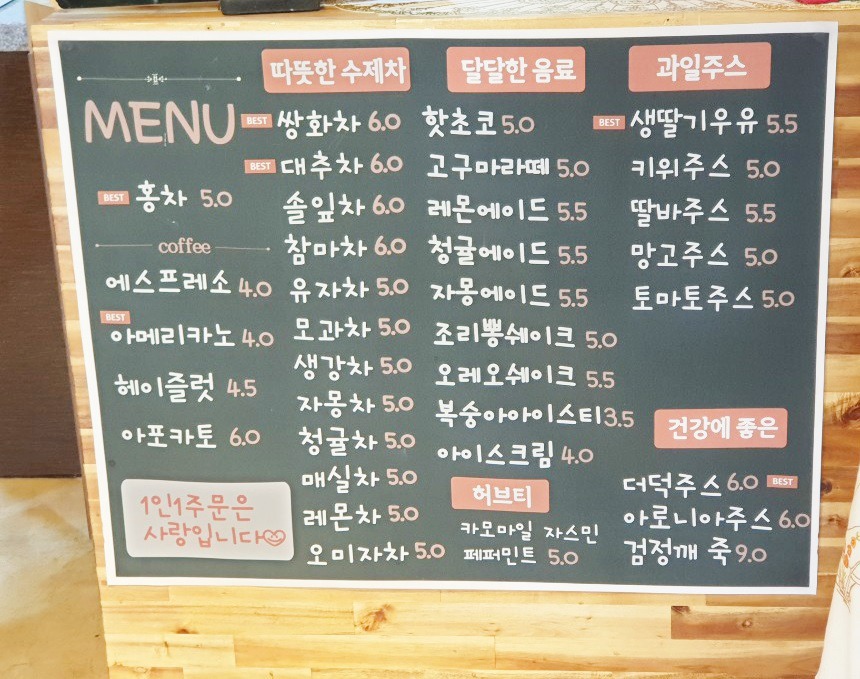 MENU
BEST 홍차 5.0
coffee
에스프레소 4.0
BEST
아메리카노 4.0
헤이즐럿 4.5
아포카토 6.0
1인1주문은
사랑입니다
따뜻한 수제차
BEST 쌍화차 6.0
BEST 대추차 6.0
솔잎차 6.0
참마차 6.0
유자차 5.0
모과차 5.0
생강차 5.0
자몽차 5.0
청귤차 5.0
매실차 5.0
레몬차 5.0
오미자차 5.0
달달한 음료
핫초코 5.0
고구마라떼 5.0
레몬에이드 5.5
청귤에이드 5.5
자몽에이드 5.5
조리뽕쉐이크 5.0
오레오쉐이크 5.5
복숭아아이스티 3.5
아이스크림 4.0
허브티
카모마일 자스민
페퍼민트 5.0
과일주스
BEST 생딸기우유 5.5
키위주스 5.0
딸바주스 5.5
망고주스 5.0
토마토주스 5.0
건강에 좋은
더덕주스 6.0 BEST
아로니아주스 6.0
검정깨 죽 9.0